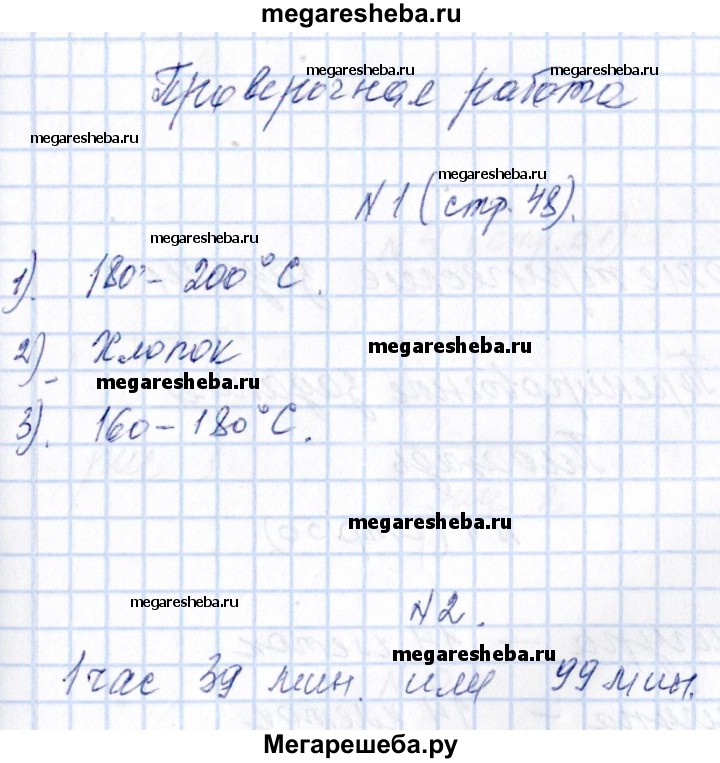 megaresheba.ru
Проверочная работа
megaresheba.ru
megaresheba.ru
megaresheba.ru
megaresheba.ru
N 1 (стр. 48).
megaresheba.ru
1). 180°- 200°C.
2) Хлопок
megaresheba.ru
megaresheba.ru
3). 160-180°C.
megaresheba.ru
megaresheba.ru
N 2.
megaresheba.ru
1 час 39 мин. или 99 мин.
Мегарешеба.ру